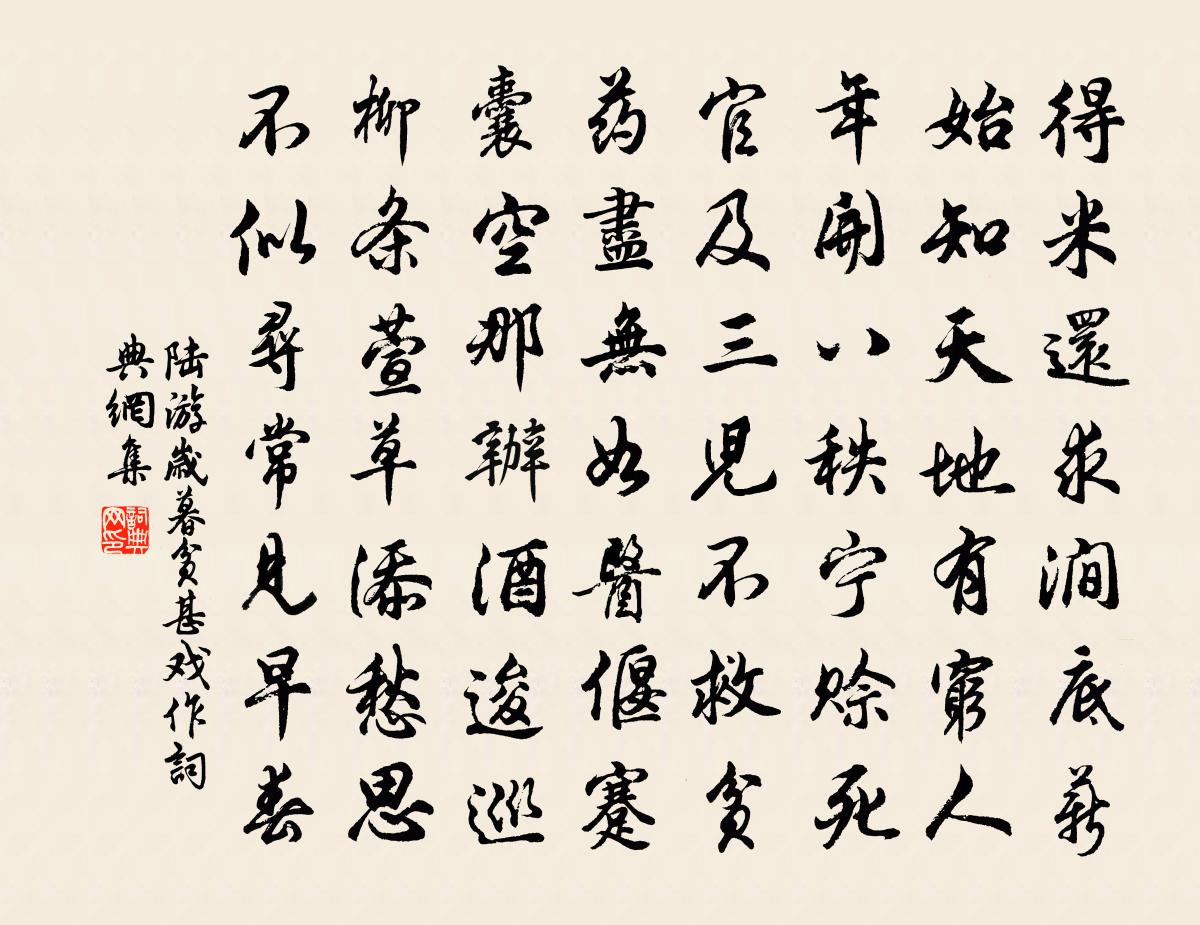 得米還求澗底薪
始知天地有窮人
年開八秩宁赊死
官及三児不救貧
药盡無如醫偃蹇
囊空那辦酒逡巡
柳条萱草添愁思
不似尋常見早春
陆游歲暮貧甚戏作詞
典網集
詞典网印